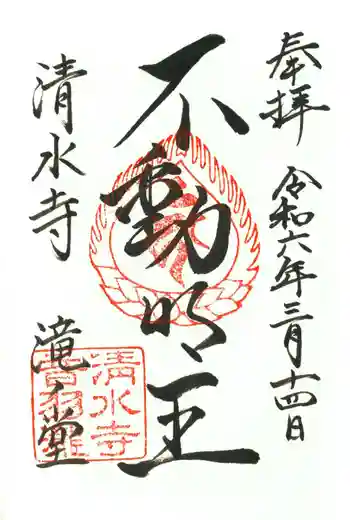 奉拝
令和六年三月十四日
不動明王
清水寺
滝堂
清水寺
音羽滝